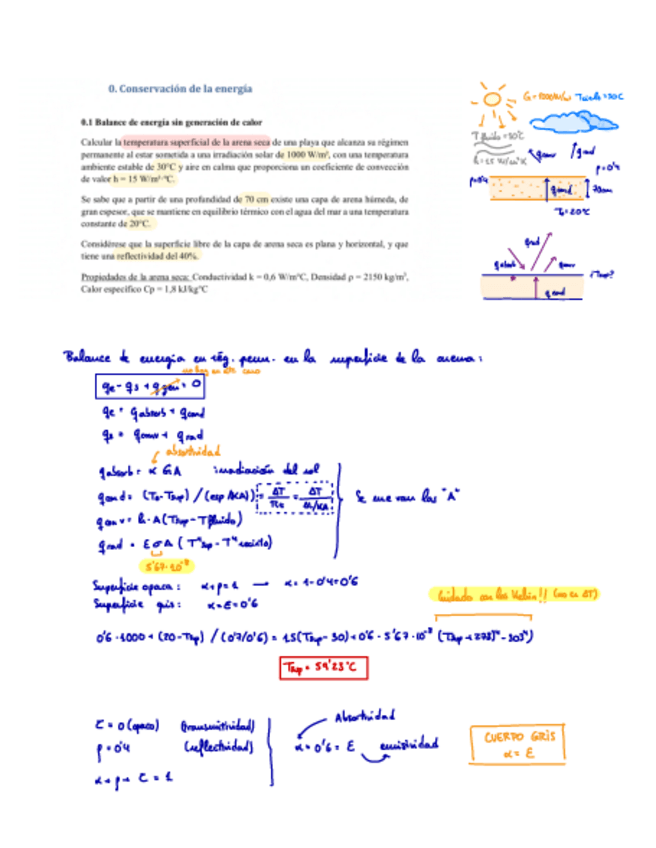 0. Conservación de la energía
0.1 Balance de energía sin generación de calor
Calcular la temperatura superficial de la arena seca de una playa que alcanza su régimen
permanente al estar sometida a una irradiación solar de 1000 W/m², con una temperatura
ambiente estable de 30°C y aire en calma que proporciona un coeficiente de convección
de valor h = 15 W/m²·°C.
Se sabe que a partir de una profundidad de 70 cm existe una capa de arena húmeda, de
gran espesor, que se mantiene en equilibrio térmico con el agua del mar a una temperatura
constante de 20°C.
Considérese que la superficie libre de la capa de arena seca es plana y horizontal, y que
tiene una reflectividad del 40%.
Propiedades de la arena seca: Conductividad k = 0,6 W/m°C, Densidad ρ = 2150 kg/m³,
Calor específico Cp = 1,8 kJ/kg°C
T fluido = 30°C
qconv
qrad
ρ=0'4
ρ=0'4
qcond
70cm
T₀=20°C
qrad
qabsorb
qconv
¿Tsup?
qcond
Balance de energía en rég. perm. en la superficie de la arena:
no hay en este caso
qe - qs + qgen = 0
qe = qabsorb + qcond
qs = qconv + qrad
absortividad
qabsorb = α G A irradiación del sol
qcond = (T₀-Tsup) / (esp/(KA)) = ΔT = ΔT
qconv = h·A(Tsup - Tfluido)
qrad = ε σ A (T⁴sup - T⁴recinto)
Se me van las "A"
5'67·10⁻⁸
Superficie opaca: α+ρ=1 → α = 1-0'4=0'6
Superficie gris: α=ε=0'6
Cuidado con los Kelvin!! (no es ΔT)
0'6·1000 + (20-Tsup) / (0'7/0'6) = 15(Tsup-30)+0'6·5'67·10⁻⁸ ((Tsup+273)⁴-303⁴)
Tsup = 59'23°C
τ = 0 (opaco) (transmitividad)
ρ = 0'4 (reflectividad)
α + ρ + τ = 1
Absortividad
α = 0'6 = ε emisividad
CUERPO GRIS
α = ε